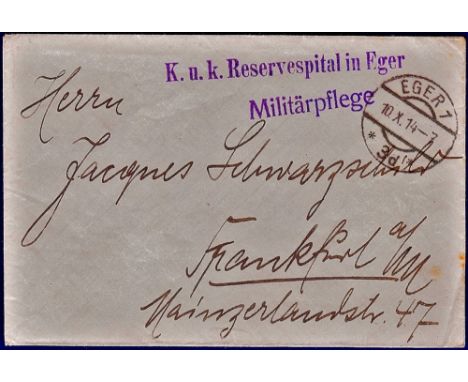 K. u. k. Reservespital in Eger
Militärpflege
EGER 1
10.X.14-7
* 3d *
Herrn
Jacques Schwarzschild
Frankfurt a/M
Mainzerlandstr. 47